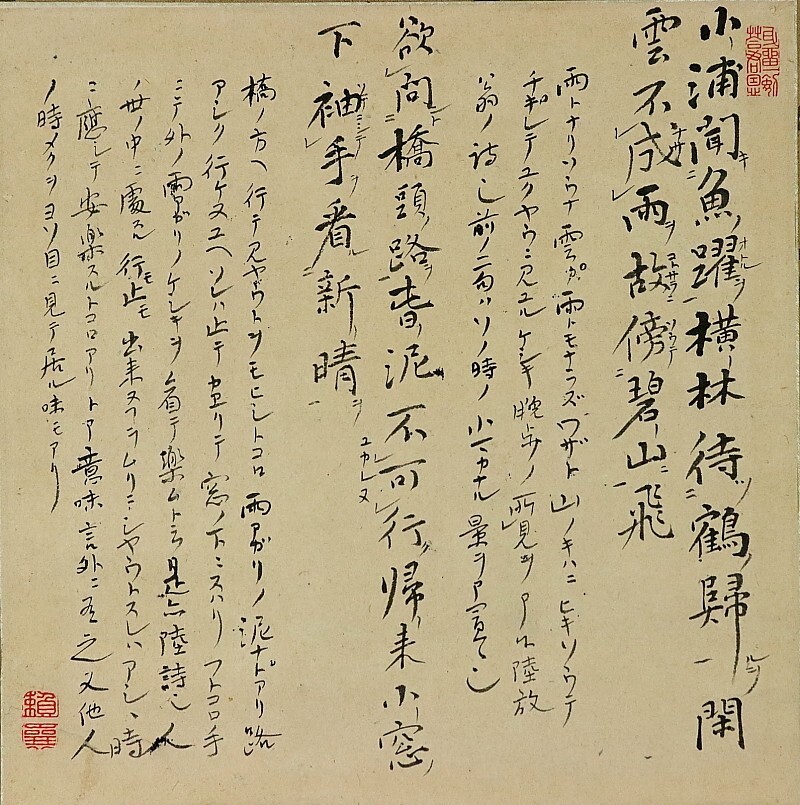 小浦聞魚躍横林待鶴歸閑
雲不成雨故傍碧山飛
雨トナリソウナ雲ガ雨トモナラズワザト山ノキハニヒキソウテ
チギレテユクヤウニ見ユルケシキ晩歩ノ所見ヲアル陸放
翁ノ詩也前ノ二句ハソノ時ノ小サナル景ヲ
欲問橋頭路青泥不可行帰来小窓
下袖手看新晴
橋ノ方ヘ行テ見ヤウトヲモヒシトコロ雨アガリノ泥ナドアリ路
アシク行ケヌユヘソレハ止テカヘリテ窓ノ下ニスハリフトコロ手
ニテ外ノ雨アガリノケシキヲ看テ樂ムトナリ是亦陸詩也人
ノ世ノ中ニ處スル行モ止モ出来ヌヲムリニシヤウトスレハアシヽ時
ニ應シテ安樂スルトコロアリトノ意味言外ニ有之又他人
ノ時メクヲヨソ目ニ見テ居ル味モアリ